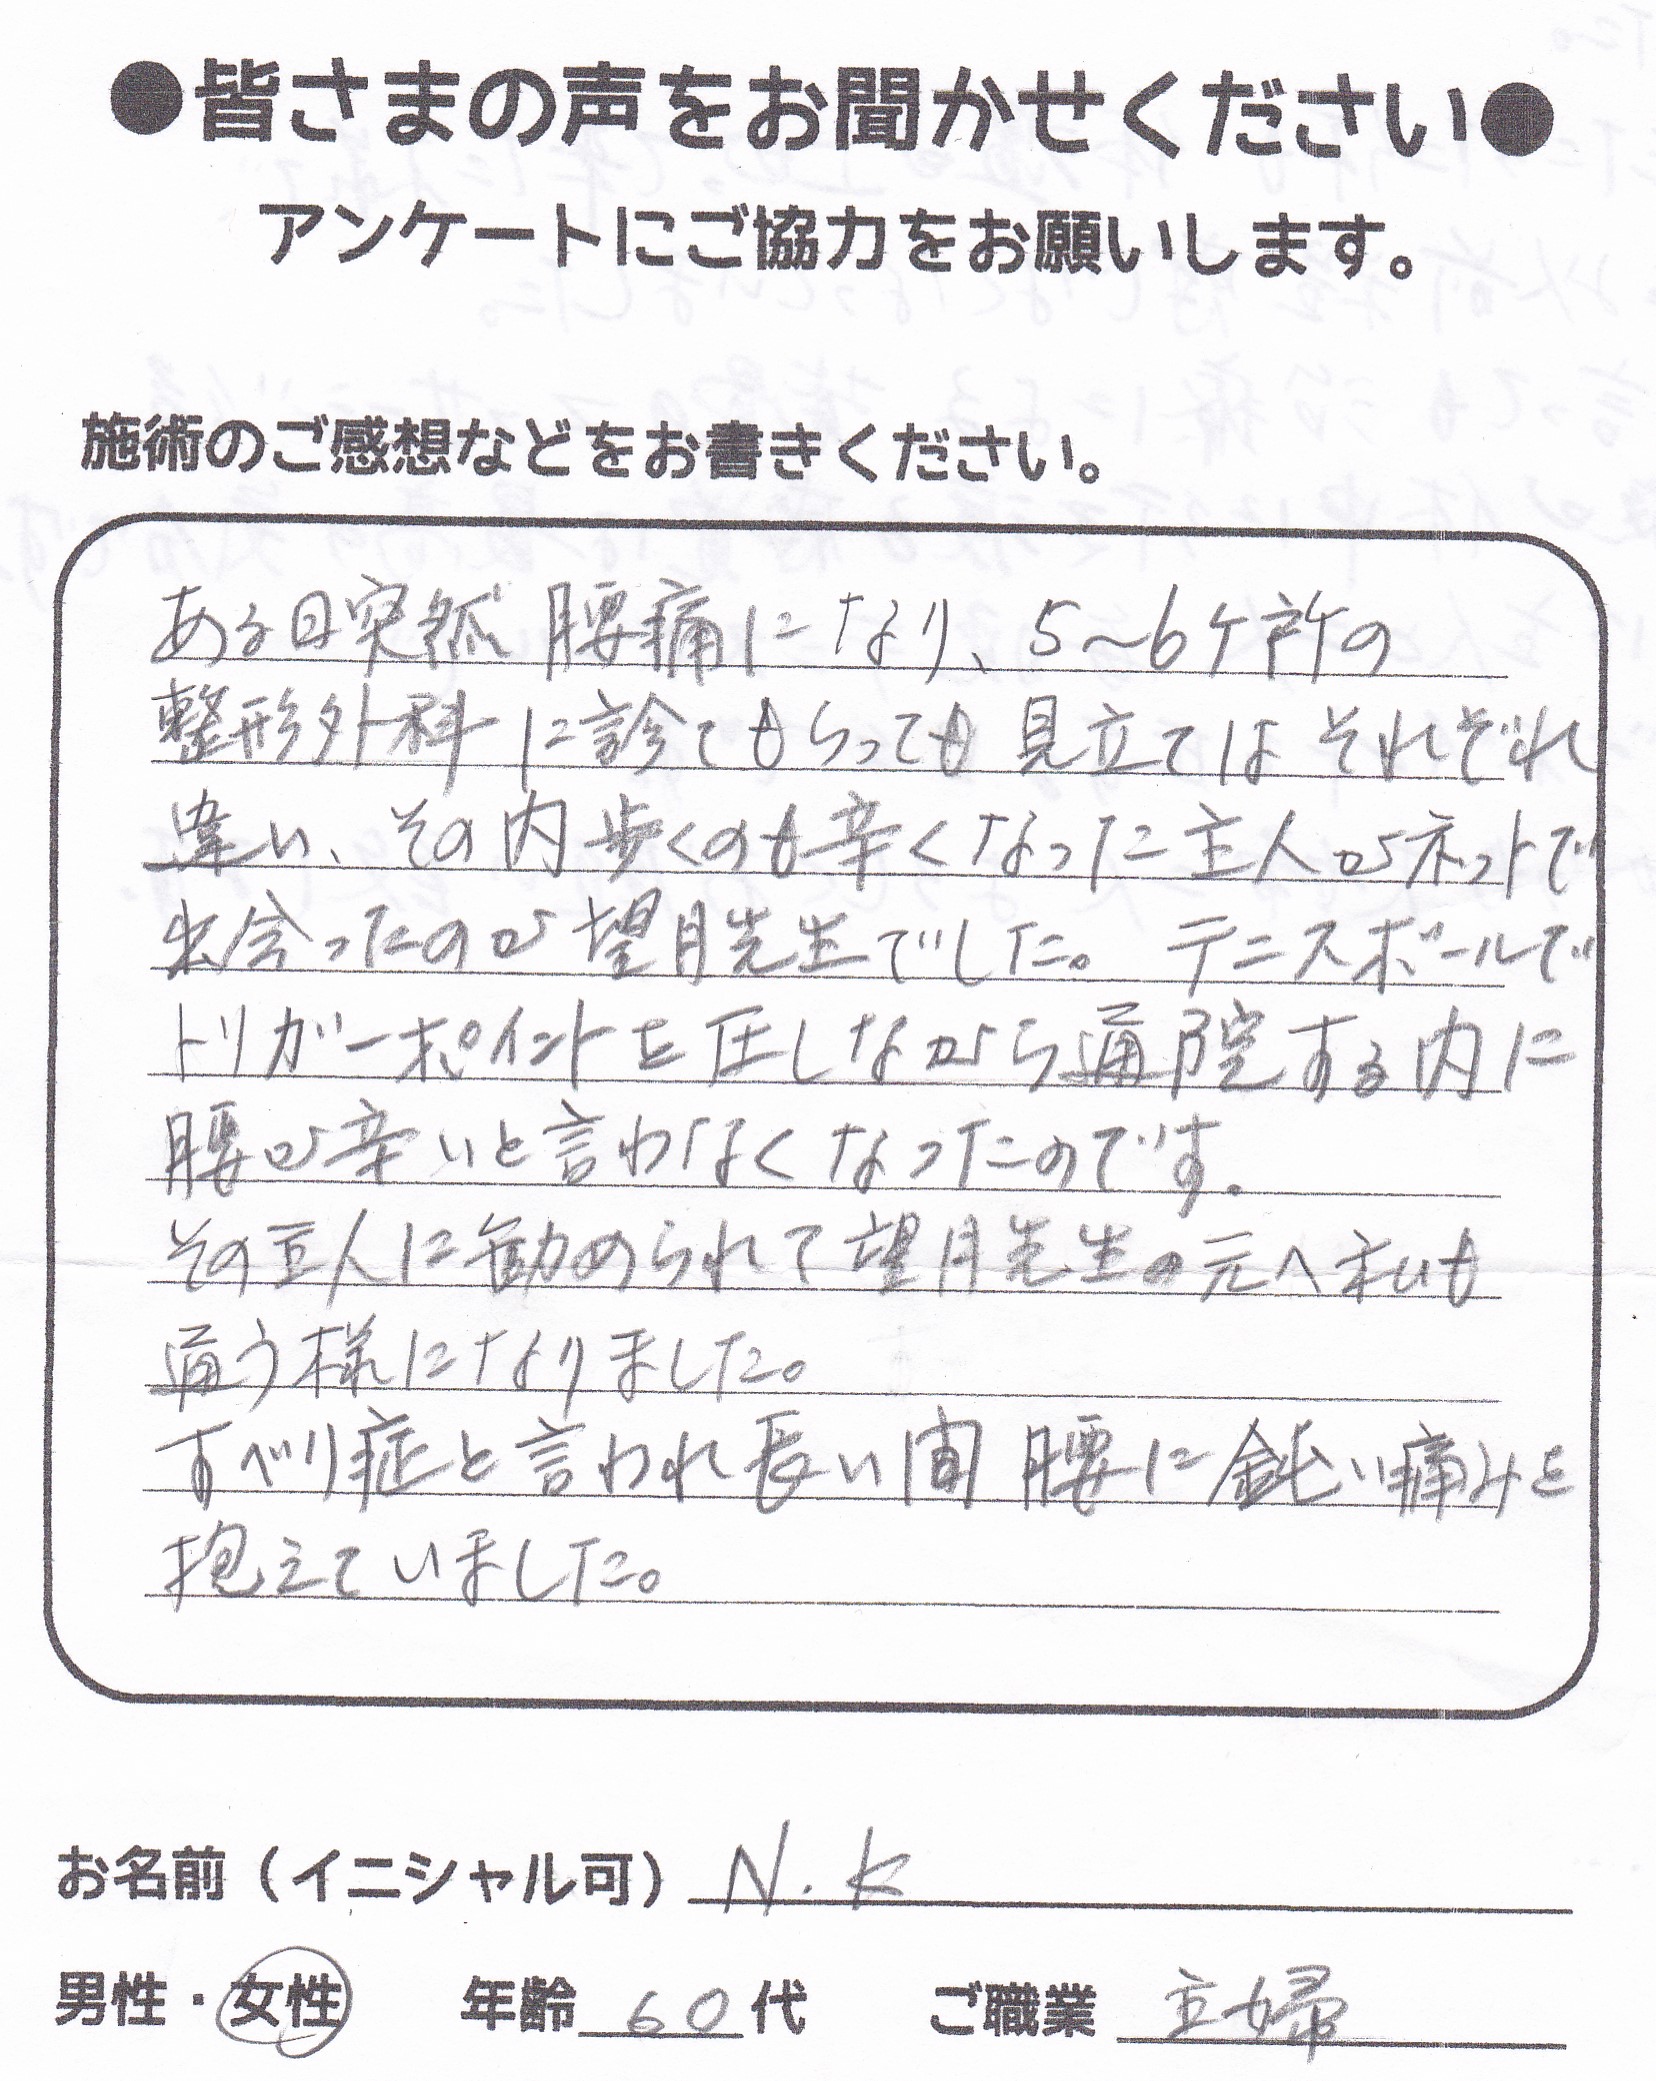 ●皆さまの声をお聞かせください●
アンケートにご協力をお願いします。
施術のご感想などをお書きください。
ある日突然 腰痛になり、5〜6ヶ所の
整形外科に診てもらっても 見立てはそれぞれ
違い、その内歩くのも辛くなった主人がネットで
出会ったのが望月先生でした。テニスボールで
トリガーポイントを圧しながら通院する内に
腰が辛いと言わなくなったのです.
その主人に勧められて望月先生の元へ私も
通う様になりました。
すべり症と言われ長い間 腰に鈍い痛みを
抱えていました。
お名前（イニシャル可） N.K
男性・女性 年齢 60代 ご職業 主婦